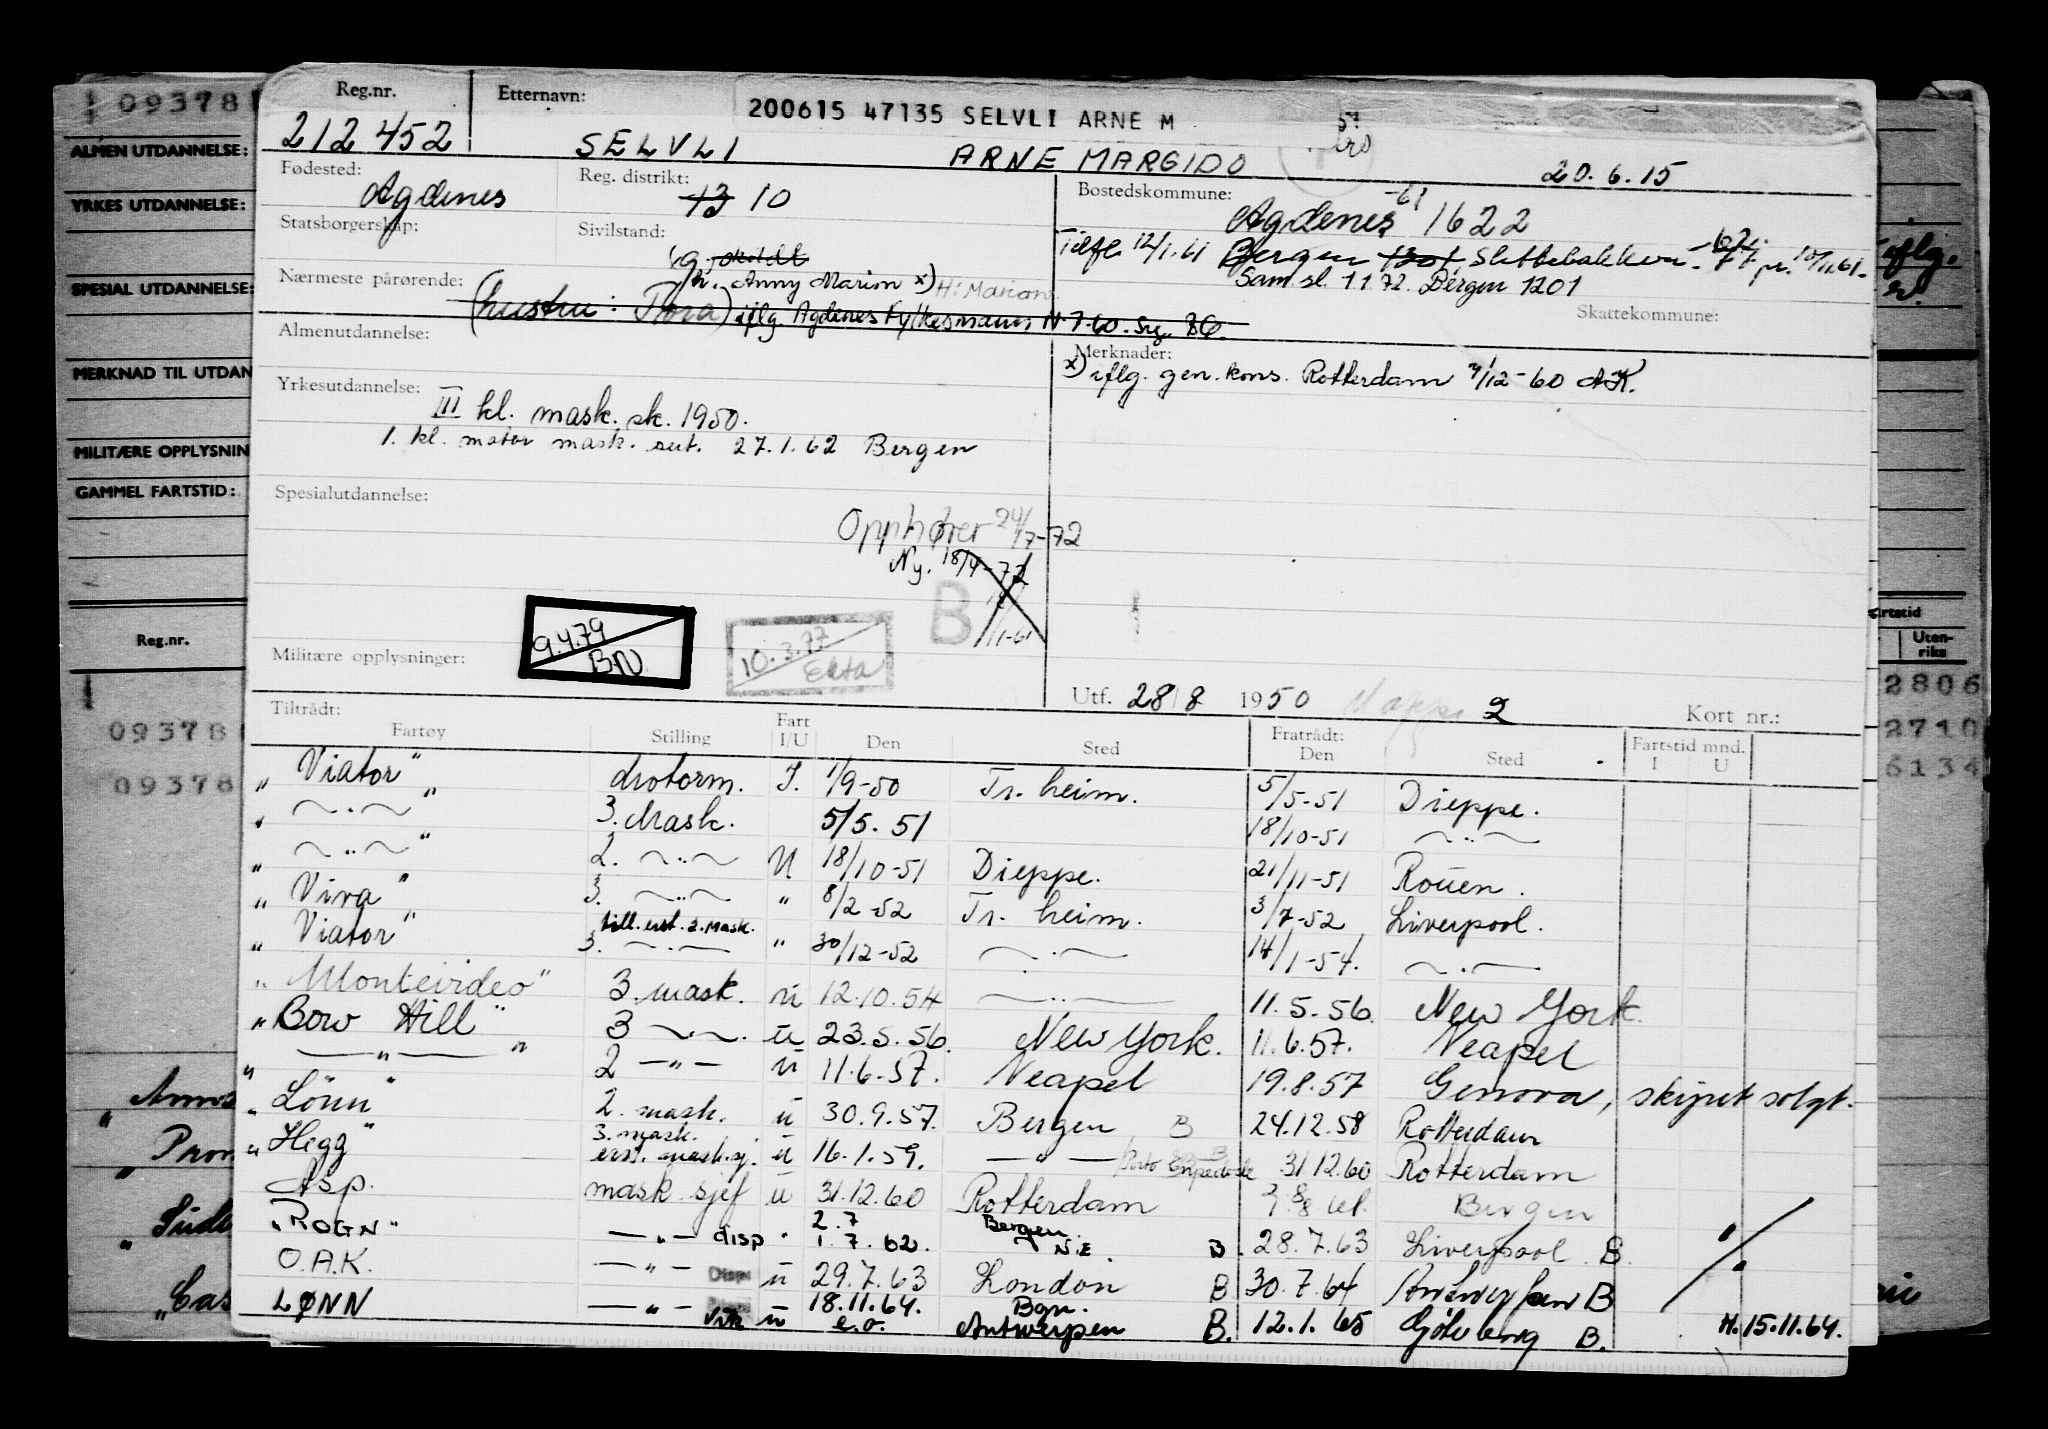 09378
ALMEN UTDANNELSE:
YRKES UTDANNELSE:
SPESIAL UTDANNELSE:
MERKNAD TIL UTDAN
MILITÆRE OPPLYSNIN
GAMMEL FARTSTID:
Reg.nr.
09378
09378
Reg.nr. Etternavn: 200615 47135 SELVLI ARNE M
212452 SELVLI ARNE MARGIDO 20.6.15
Fødested: Agdenes Reg. distrikt: 13 10 Bostedskommune: Agdenes -61 1622
Statsborgerskap: Sivilstand: g.
Tilfl. 12/1.61 Bergen 1301 Slettebakken
Sam.sl. 1.1.72. Bergen 1201
Nærmeste pårørende: h. Anny Marion x) H: Marion
(hustru: Tora) iflg. Agdenes Fylkesmanns
Skattekommune:
Almenutdannelse:
Merknader:
x) iflg. gen.kons. Rotterdam /12-60 AK.
Yrkesutdannelse: III kl. mask. sk. 1950.
1. kl. motor mask. sert. 27.1.62 Bergen
Spesialutdannelse:
Opphører 24/7-72
Ny. 18/4-72
B 11-61
9.4.79 BN
10.3.77
Militære opplysninger:
Utf. 28/8 1950 Mappe 2 Kort nr.:
Tiltrådt: Fratrådt:
Fartøy Stilling Fart I/U Den Sted Den Sted Fartstid mnd. I U
„Viator" Motorm. I. 1/9-50 Tr.heim. 5/5-51 Dieppe.
„ ~·~ " 3. Mask. 5/5. 51 18/10-51 ~··~
„ ~··~ " 2. ~··~ U 18/10-51 Dieppe. 21/11-51 Rouen.
„ Viva " 3. ~··~ " 8/2-52 Tr. heim. 3/7-52 Liverpool.
„ Viator " 3. ~·~ till. erst. 2. mask. " 30/12-52 ~·~ 14/1-54. ~·~
„ Montevideo " 3. mask. u 12.10.54 ~··~ 11.5.56. New York.
„ Bow Hill " 3 ~··~ u 23.5.56. New York. 11.6.57. Neapel
„ —"— " 2 —"— u 11.6.57. Neapel 19.8.57 Genova, skipet solgt.
„ Lönn " 2. mask. u 30.9.57. Bergen B 24.12.58 Rotterdam
„ Hegg " 3. mask. erst. mask.sj. u 16.1.59. —"— Porto Empedocle 31.12.60 Rotterdam
Asp. mask sjef u 31.12.60 Rotterdam Bergen
„ROGN" —"— disp " 2.7 1.7.62. Bergen N.E. B. 28.7.63 Liverpool B. "
O.A.K. —"— Disp. u 29.7.63 London B 30.7.64 Antwerpen B "
LØNN —"— u 18.11.64. e.o. Bgn. Antwerpen B. 12.1.65 Gøteborg B. H. 15.11.64.
iflg.
Uten-
riks
2806
2710
6134